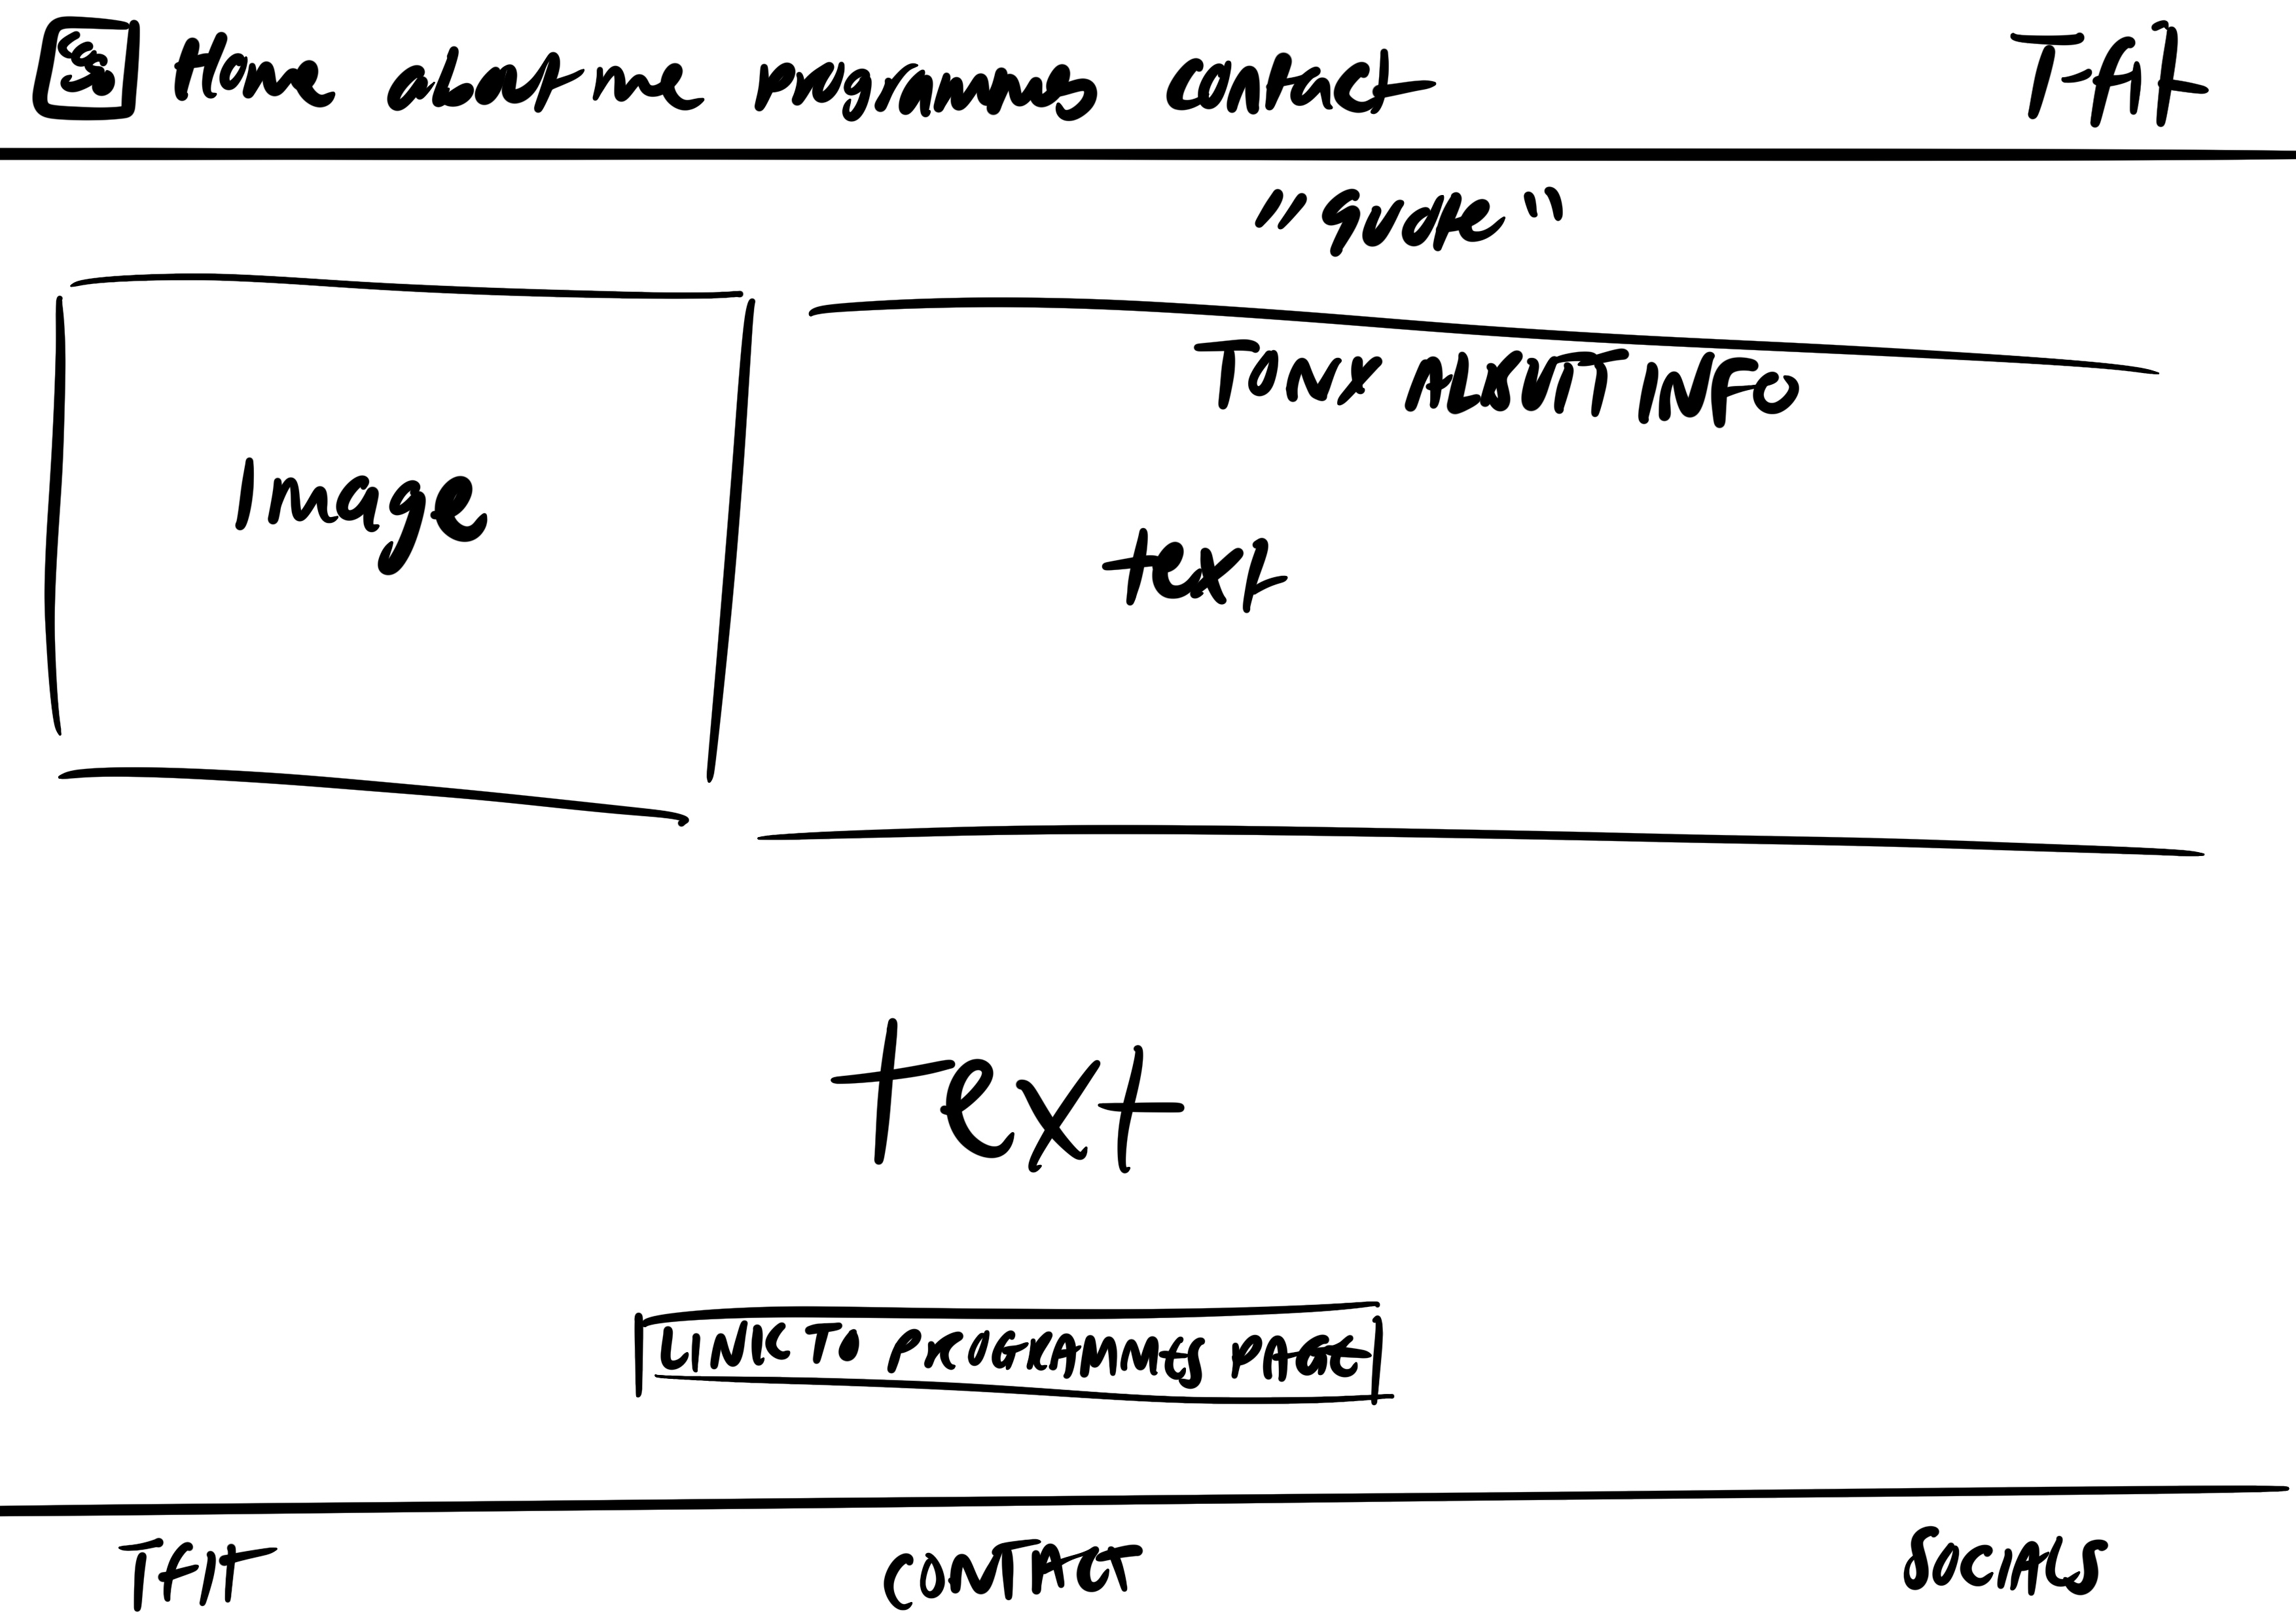 Home about me programmes contact T-fit
"Quote"
TONY ALBUTT INFO
Image
text
text
LINK TO PROGRAMMES PAGE
TFIT CONTACT SOCIALS